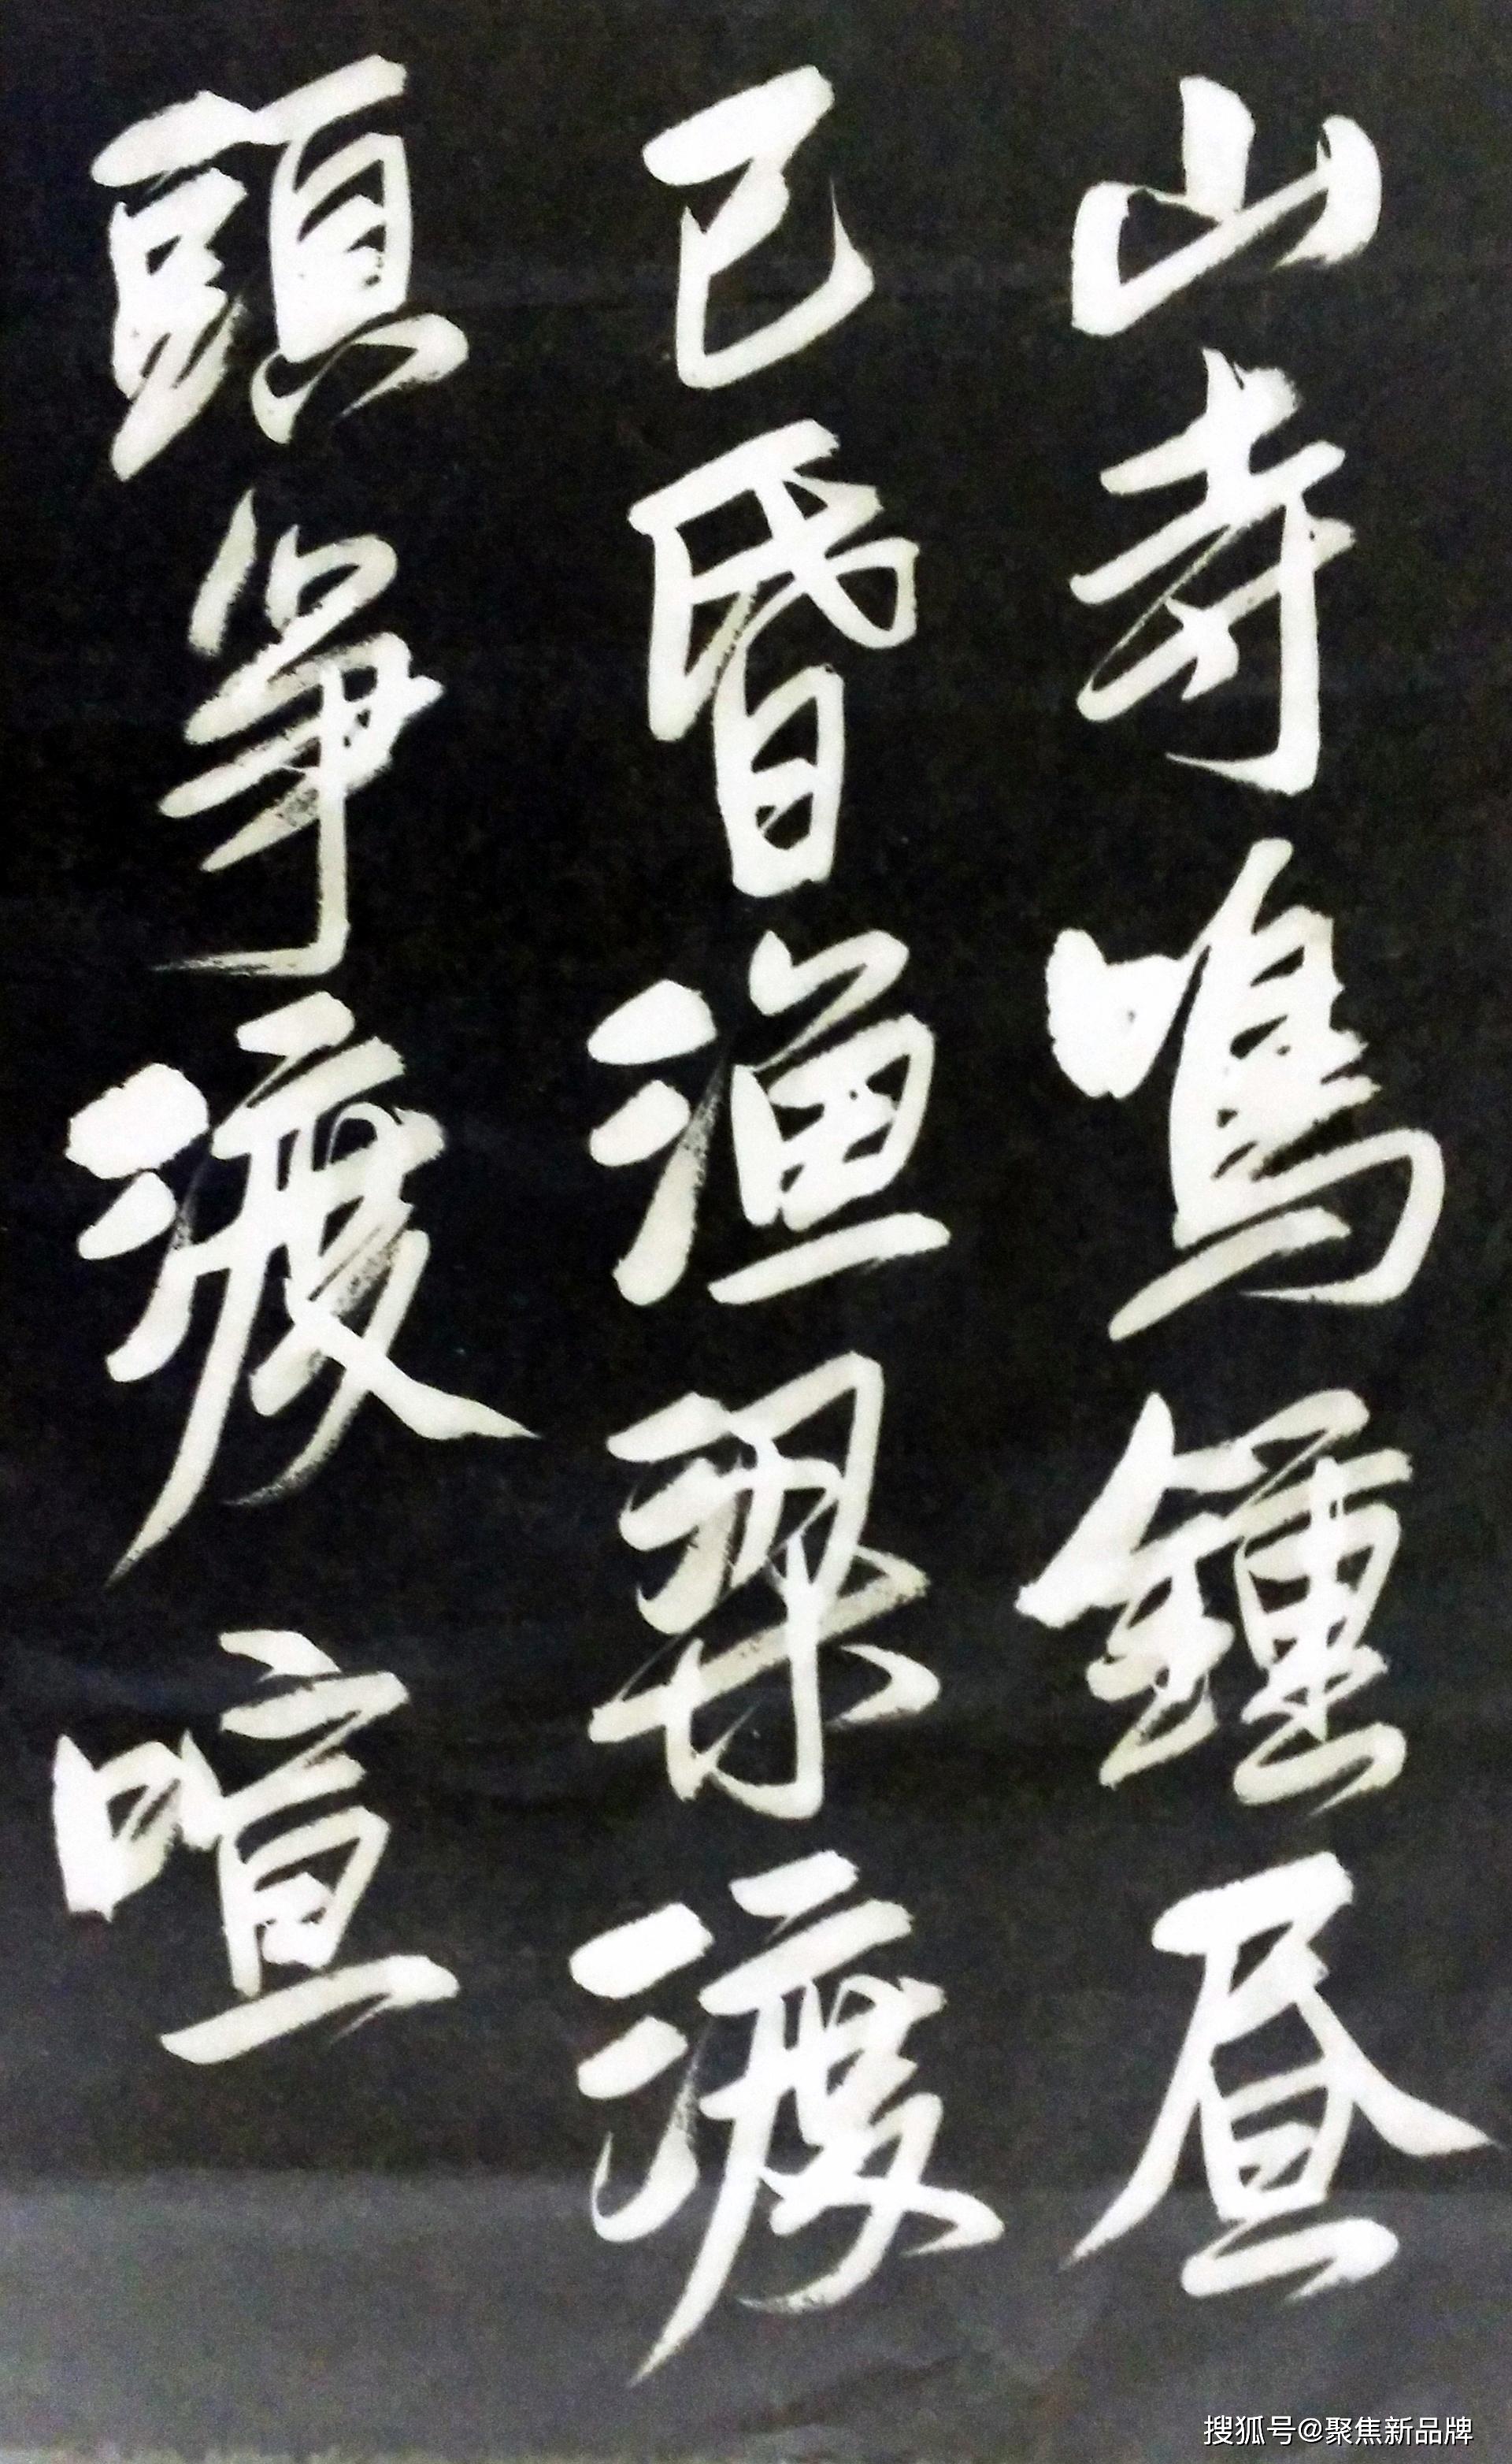 山寺鳴鍾昼
已昏渔梁渡
頭爭渡喧
搜狐号@聚焦新品牌